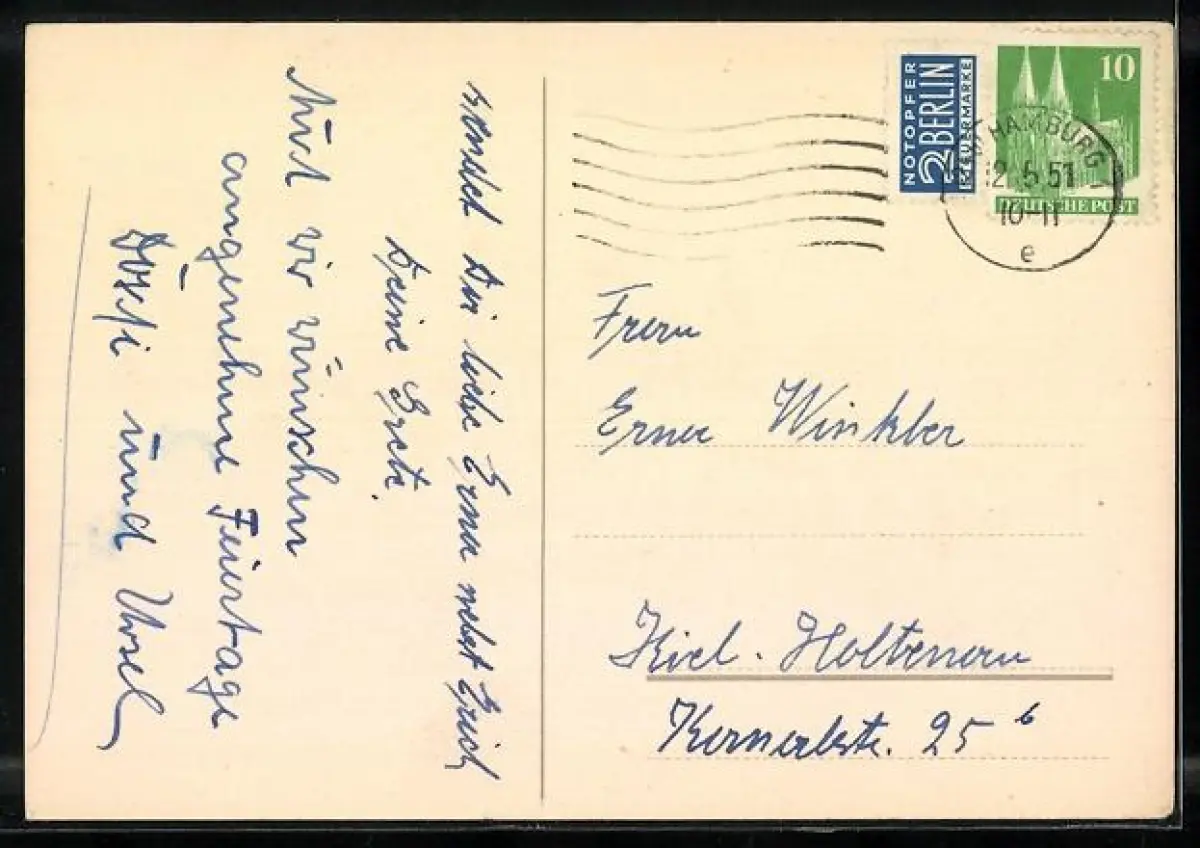 wünschet Dir liebe Erna nebst Erich
Deine Grete.
Auch wir wünschen
angenehme Feiertage
und Ursel
NOTOPFER
2 BERLIN
STEUERMARKE
10
DEUTSCHE POST
HAMBURG
12.5.51
10-11
e
Frau
Erna Winkler
Kiel-Holtenau
Kanalstr. 25 b